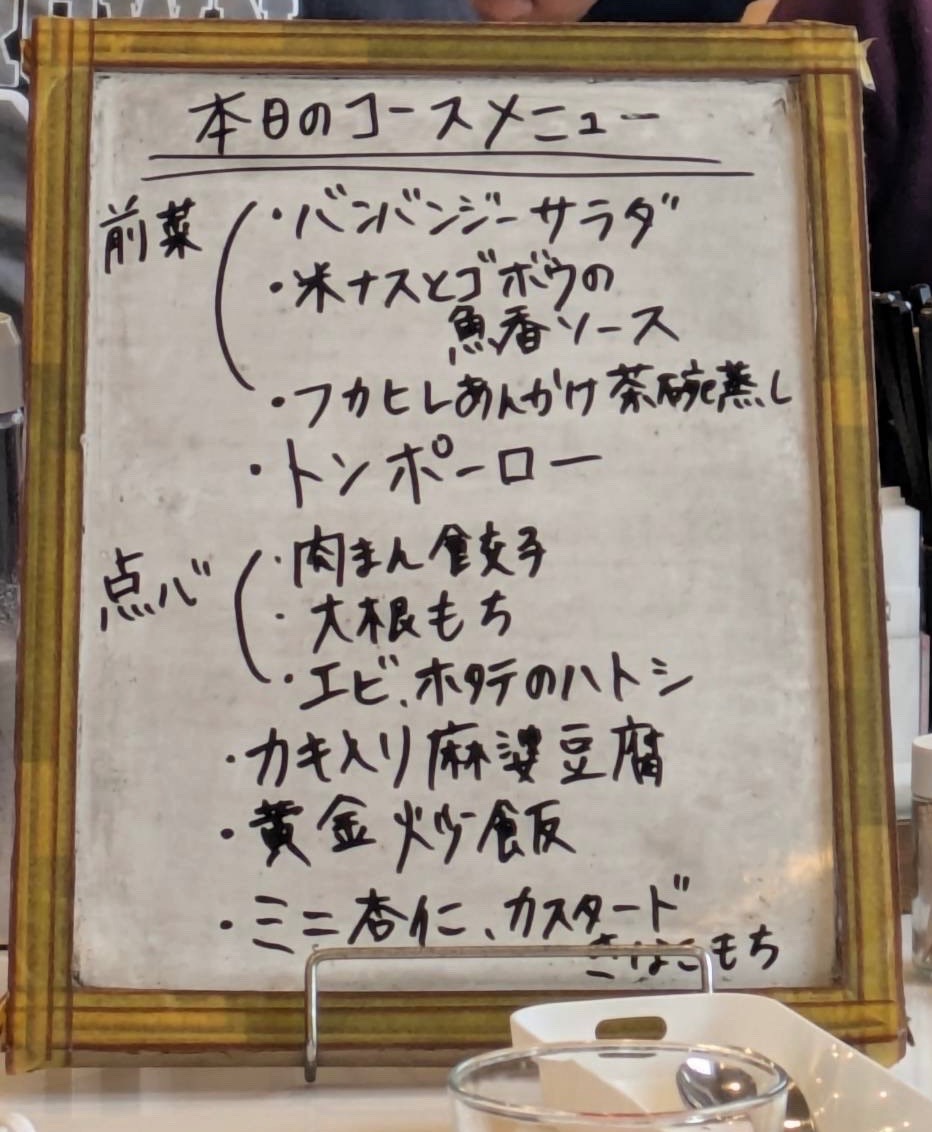 本日のコースメニュー
前菜
・バンバンジーサラダ
・米ナスとゴボウの
魚香ソース
・フカヒレあんかけ茶碗蒸し
・トンポーロー
点心
・肉まん餃子
・大根もち
・エビ、ホタテのハトシ
・カキ入り麻婆豆腐
・黄金炒飯
・ミニ杏仁、カスタード
きなこもち